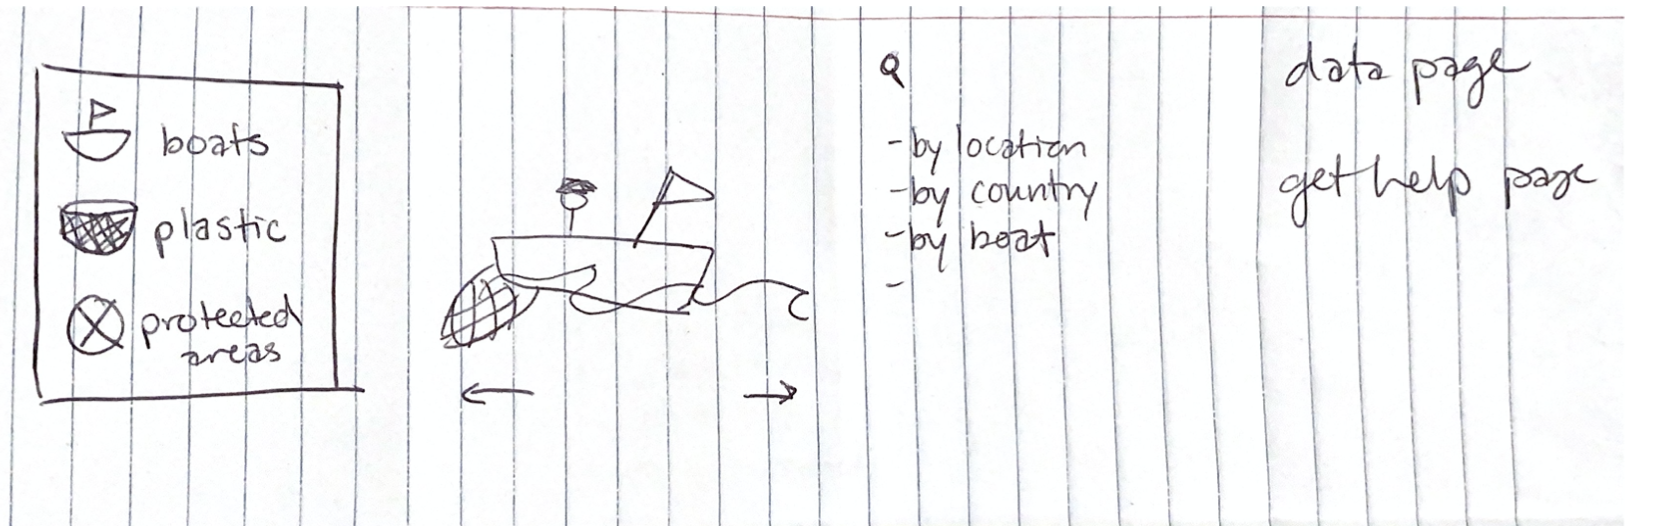 boats
plastic
protected
areas
- by location
- by country
- by boat
-
data page
get help page